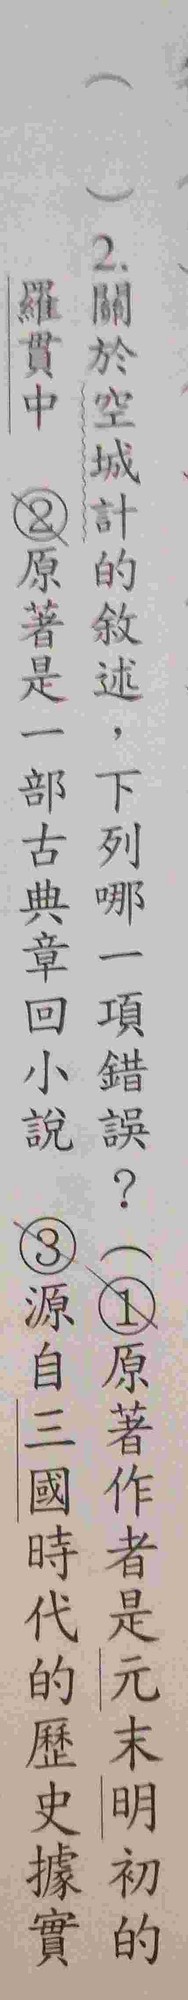 （　　）2.關於空城計的敘述，下列哪一項錯誤？（①原著作者是元末明初的
羅貫中　②原著是一部古典章回小說　③源自三國時代的歷史據實